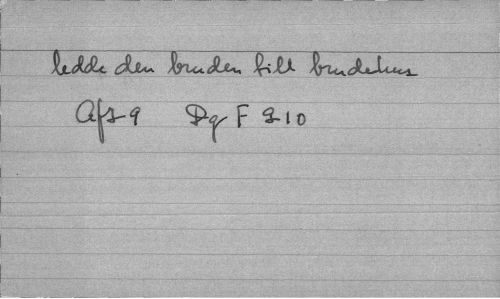 ledde den bruden till brudehus
Afz 9 Dg F 210